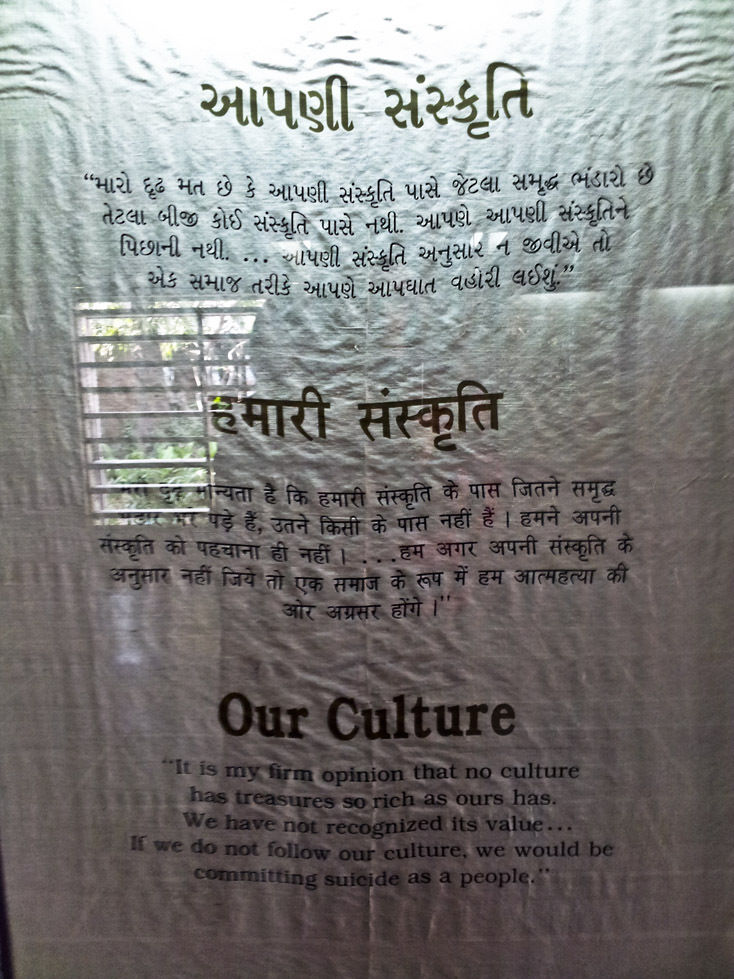 આપણી સંસ્કૃતિ
“મારો દૃઢ મત છે કે આપણી સંસ્કૃતિ પાસે જેટલા સમૃદ્ધ ભંડારો છે
તેટલા બીજી કોઈ સંસ્કૃતિ પાસે નથી. આપણે આપણી સંસ્કૃતિને
પિછાની નથી. ... આપણી સંસ્કૃતિ અનુસાર ન જીવીએ તો
એક સમાજ તરીકે આપણે આપઘાત વહોરી લઈશું.”
हमारी संस्कृति
मान्यता है कि हमारी संस्कृति के पास जितने समृद्ध
पड़े हैं, उतने किसी के पास नहीं हैं । हमने अपनी
संस्कृति को पहचाना ही नहीं । ...हम अगर अपनी संस्कृति के
अनुसार नहीं जिये तो एक समाज के रूप में हम आत्महत्या की
ओर अग्रसर होंगे ।”
Our Culture
“It is my firm opinion that no culture
has treasures so rich as ours has.
We have not recognized its value...
If we do not follow our culture, we would be
committing suicide as a people.”